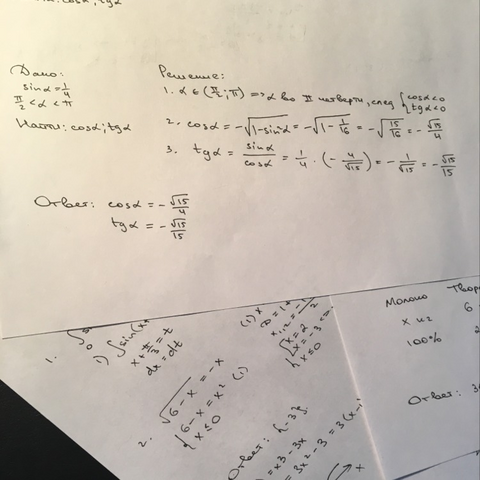 sinα. cosα, tgα
Дано:
sinα = 1/4
π/2 < α < π
Найти: cosα; tgα
Решение:
1. α ∈ (π/2; π) => α во II четверти, след { cosα < 0
tgα < 0
2. cosα = -√(1-sin²α) = -√(1 - 1/16) = -√(15/16) = -√15/4
3. tgα = sinα/cosα = 1/4 · (-4/√15) = -1/√15 = -√15/15
Ответ: cosα = -√15/4
tgα = -√15/15
1.
1) ∫sin(x+
x + π/3 = t
dx = dt
2. √(6-x) = -x
{ 6-x = x² (1)
x ≤ 0
(1) x
x = 2
x = -3
x ≤ 0
Ответ: {-3}.
= x3 - 3x
= 3x2 - 3 = 3(x-1
x
Молоко Твор
x кг 6
100%
Ответ: 3